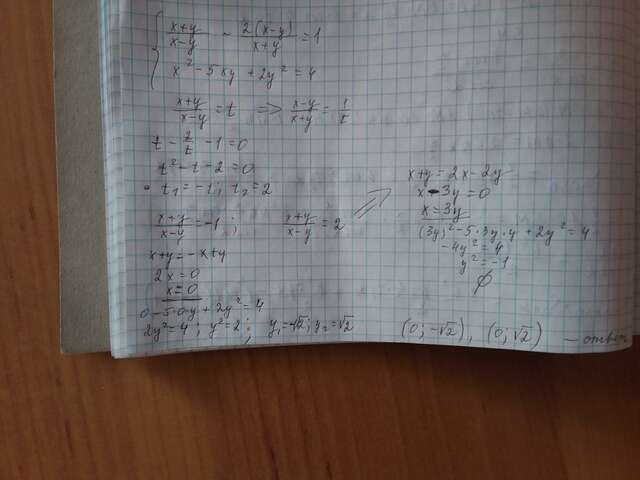 { (x+y)/(x-y) - 2(x-y)/(x+y) = 1
x² - 5xy + 2y² = 4
(x+y)/(x-y) = t => (x-y)/(x+y) = 1/t
t - 2/t - 1 = 0
t² - t - 2 = 0
t₁ = -1; t₂ = 2
(x+y)/(x-y) = -1; (x+y)/(x-y) = 2 =>
x+y = -x+y
2x = 0
x = 0
0 - 5·0·y + 2y² = 4
2y² = 4; y² = 2; y₁ = -√2; y₂ = √2
x+y = 2x-2y
x - 3y = 0
x = 3y
(3y)² - 5·3y·y + 2y² = 4
-4y² = 4
y² = -1
∅
(0; -√2), (0; √2) — ответ